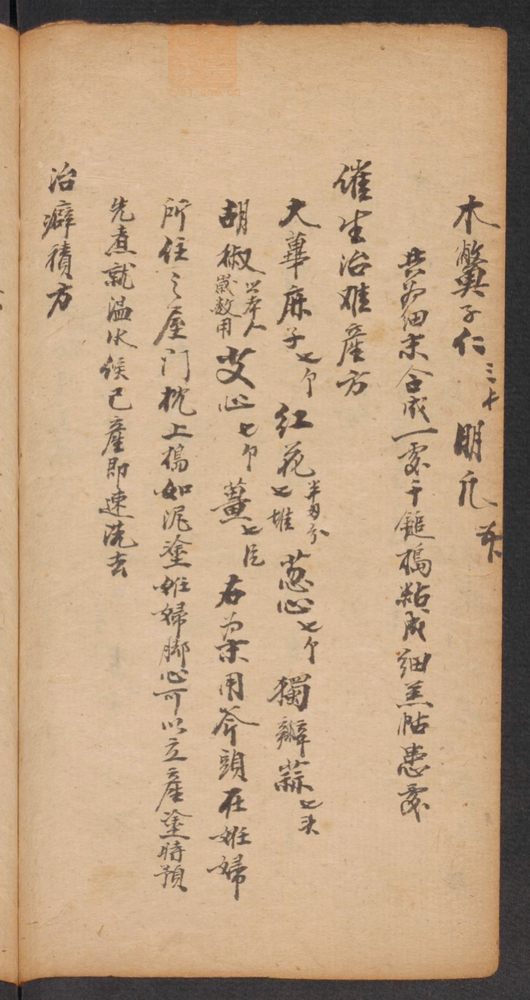 木鱉子仁三十 明凡
共為細末合成一處千鎚搗粘成細羔帖患處
催生治难產方
大萆麻子七个 紅花七堆半匁分 葱心七个 獨瓣蒜七头
胡椒照本人歲数用 艾心七个 薑七片 右為末用斧頭在姙婦
所住之屋门枕上搗如泥塗姙婦脚心可以立產塗時預
先煮就溫水候已產即速洗去
治癖積方